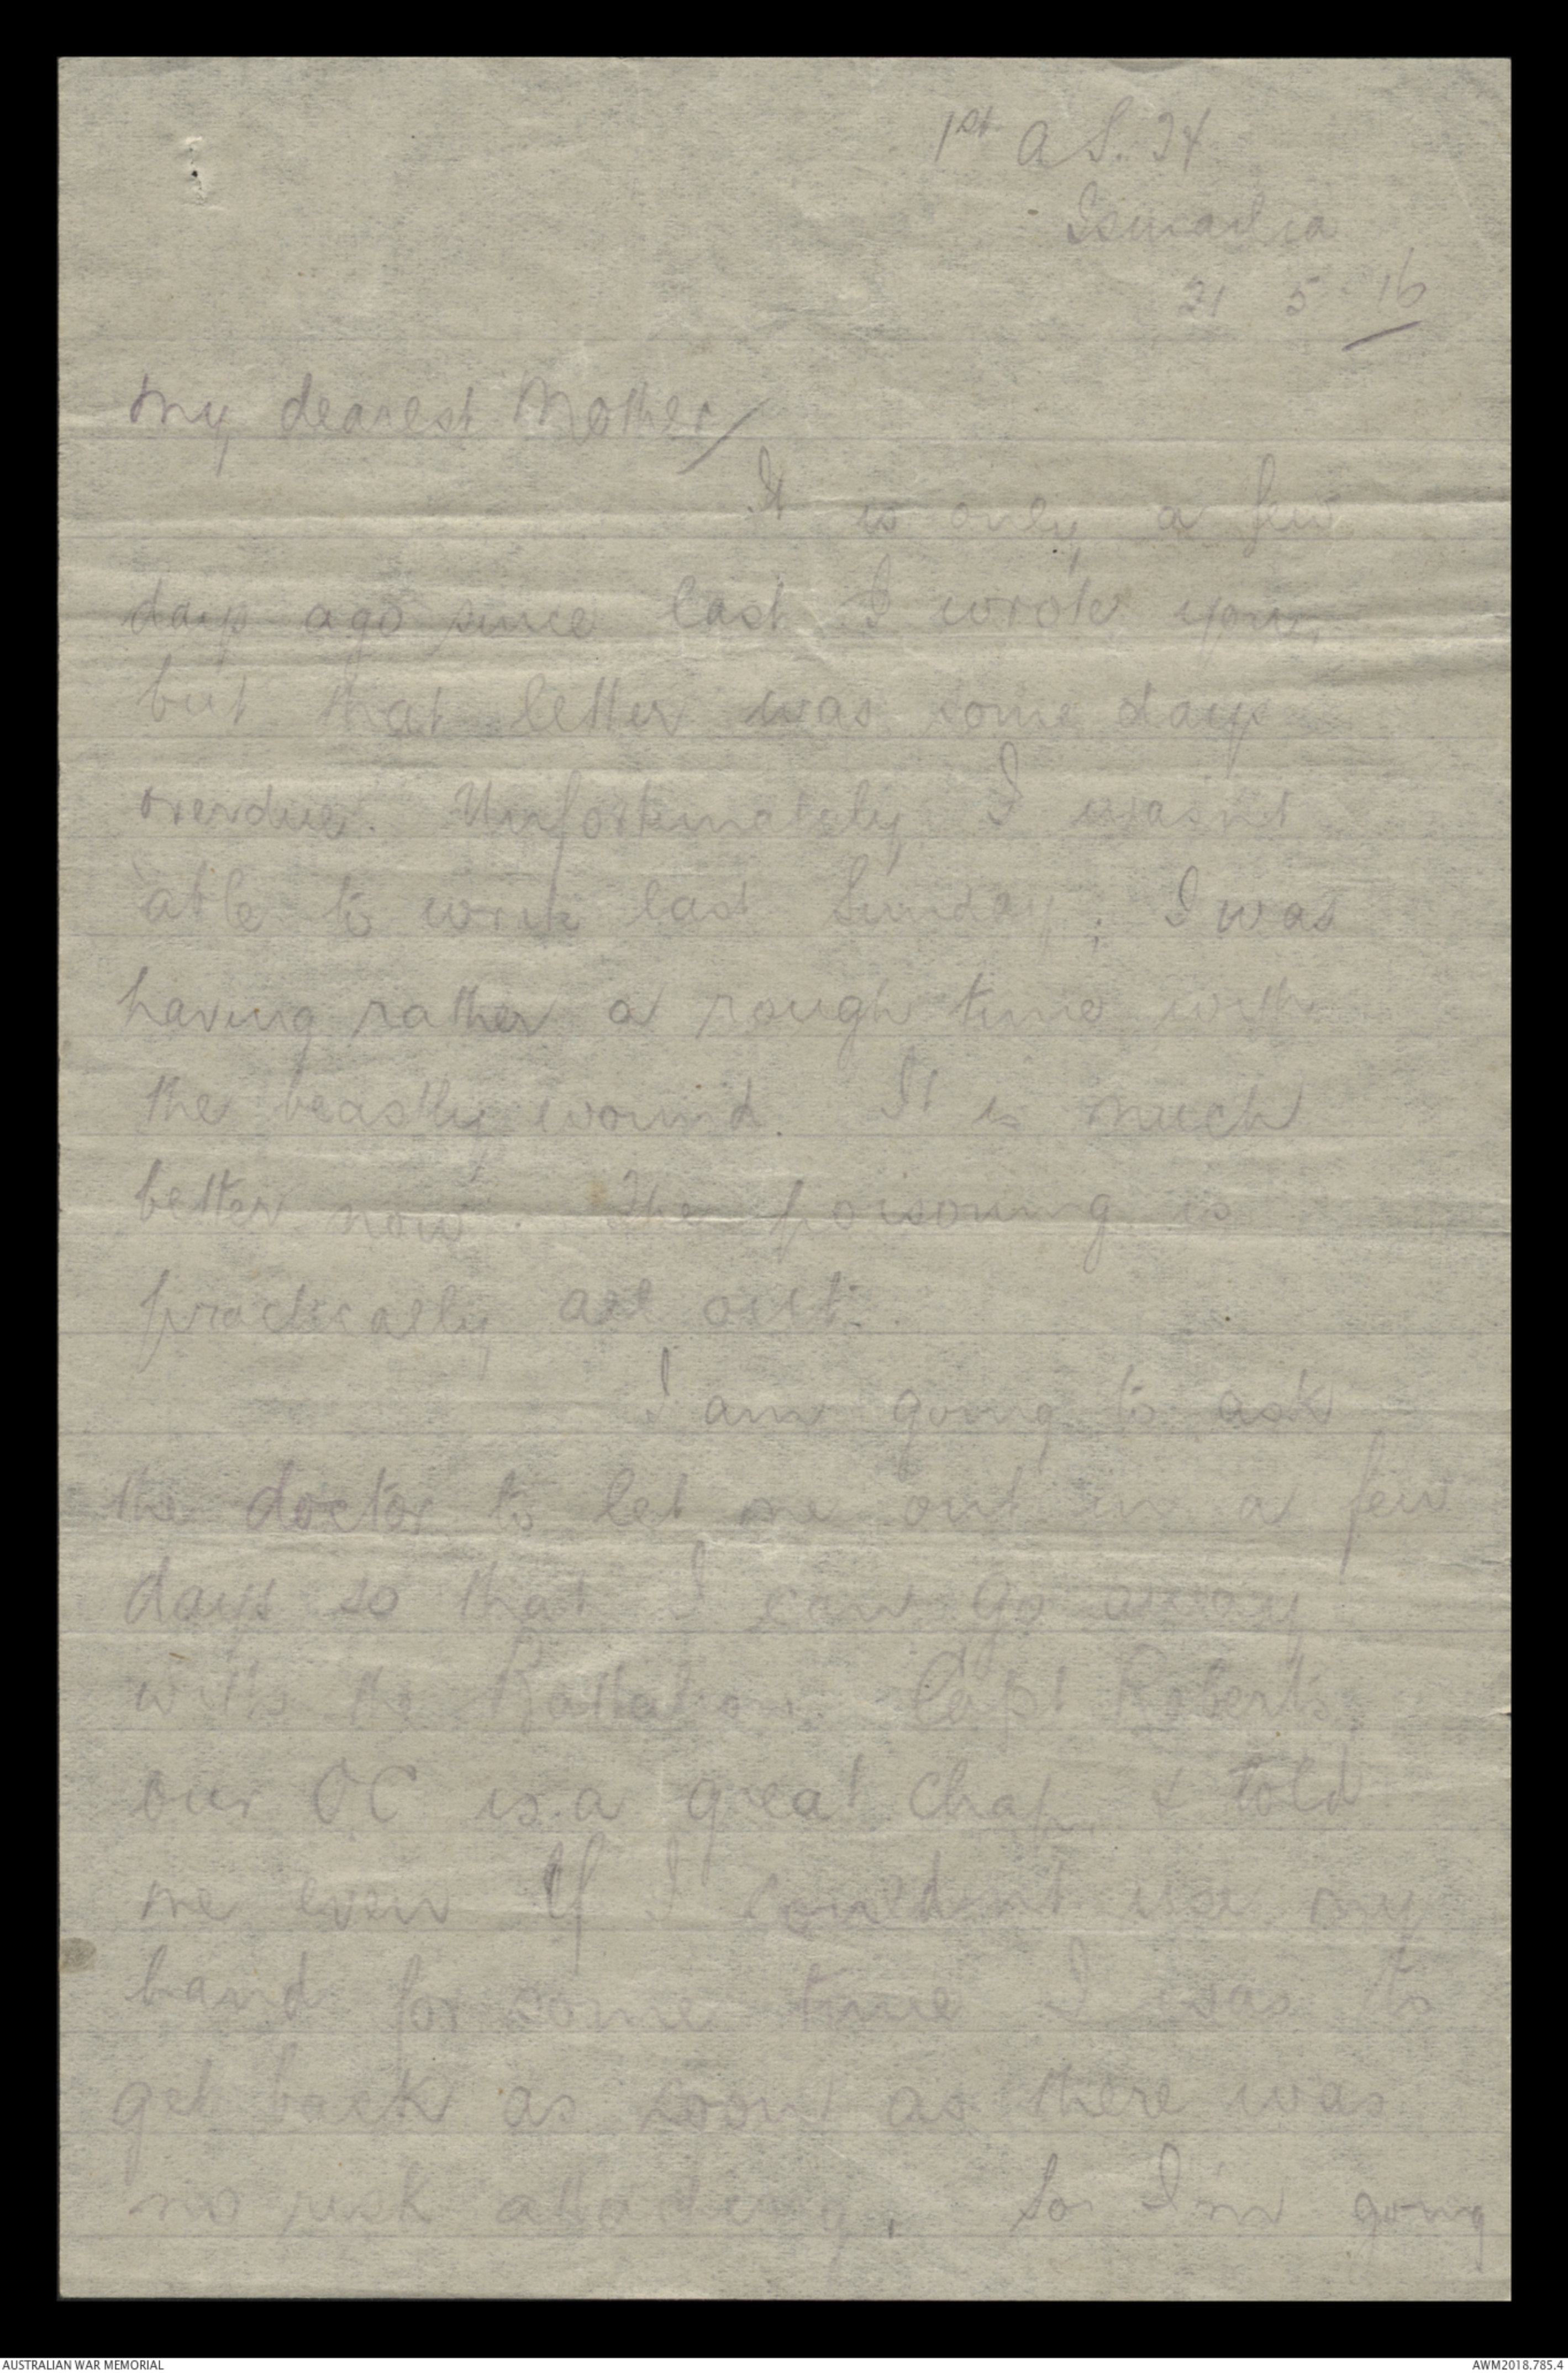 1st A S. H
Ismailia
21 5-16
My dearest Mother/
It is only a few
days ago since last I wrote you,
but that letter was some days
overdue. Unfortunately I wasn't
able to write last Sunday; I was
having rather a rough time with
the beastly wound. It is much
better now. The poisoning is
practically all out.
I am going to ask
the doctor to let me out in a few
days so that I can go away
with the Battalion. Capt Roberts,
our OC is a great chap, & told
me even if I couldn't use my
hand for some time I was to
get back as soon as there was
no risk attaching. So I'm going
AUSTRALIAN WAR MEMORIAL
AWM2018.785.4